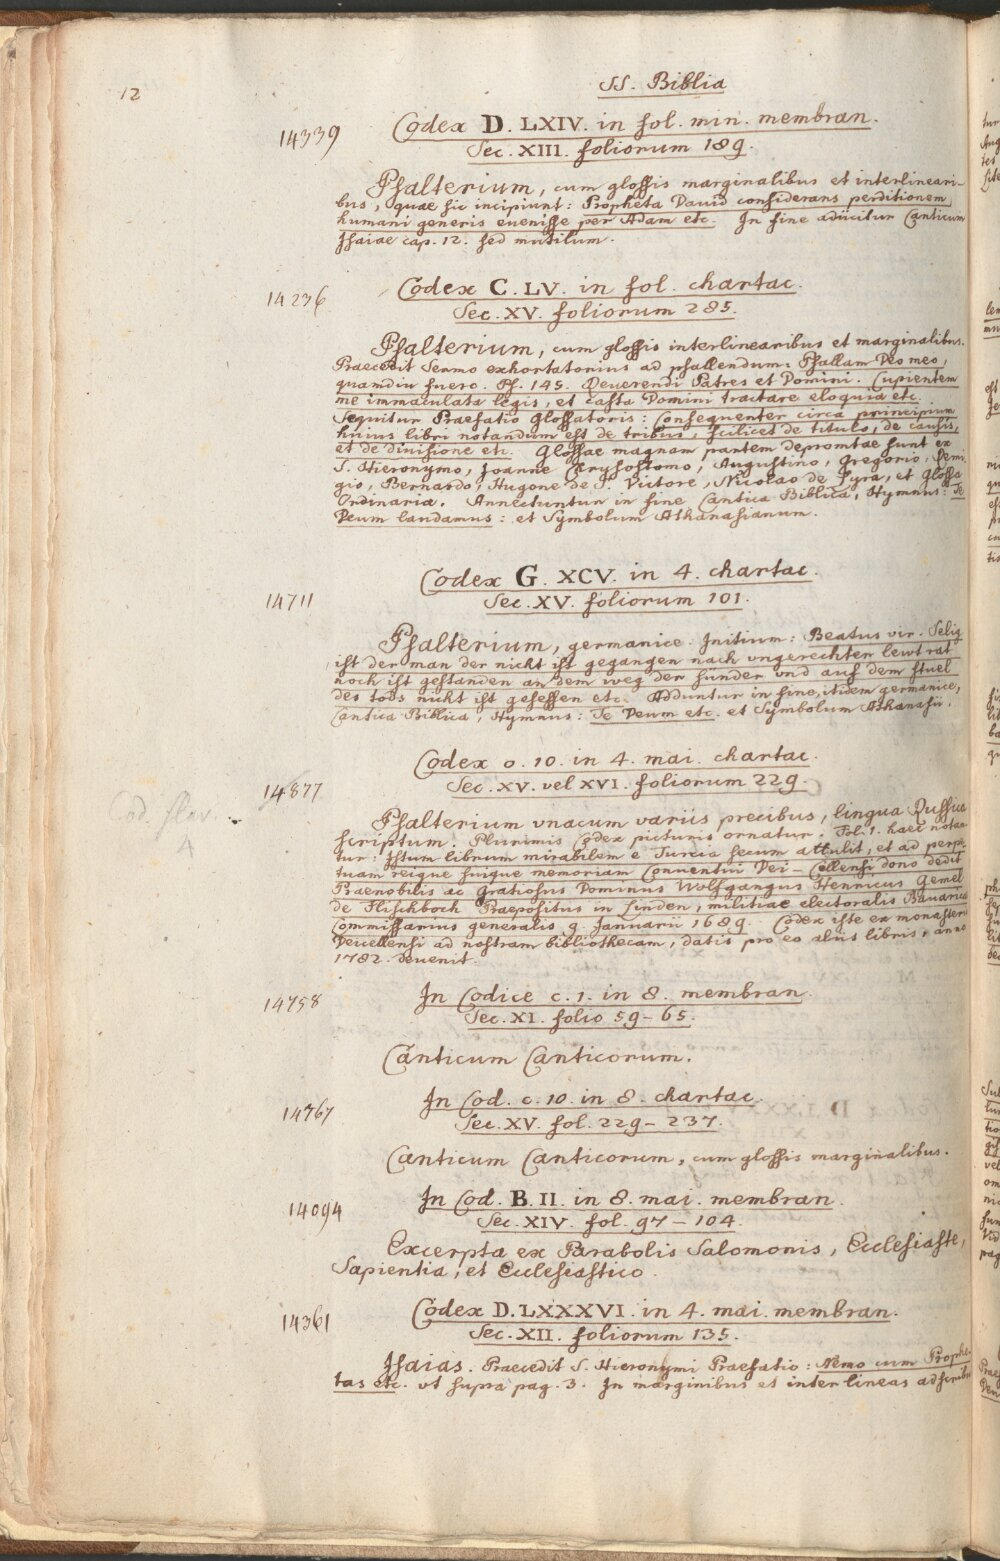 12
SS. Biblia
14339
Codex D. LXIV. in fol. min. membran.
Sec. XIII. foliorum 189.
Psalterium, cum glossis marginalibus et interlineari-
bus, quae sic incipiunt: Propheta Dauid considerans perditionem
humani generis euenisse per Adam etc. In fine adiicitur Canticum
Isaiae cap. 12. sed mutilum.
14236
Codex C. LV. in fol. chartac.
Sec. XV. foliorum 285.
Psalterium, cum glossis interlinearibus et marginalibus.
Praecedit Sermo exhortatorius ad psallendum: Psallam Deo meo,
quamdiu fuero. Ps. 145. Reuerendi Patres et Domini. Cupientem
me immaculata legis, et casta Domini tractare eloquia etc.
Sequitur Praefatio Glossatoris: Consequenter circa principium
huius libri notandum est de tribus, scilicet de titulo, de causis,
et de diuisione etc. Glossae magnam partem depromtae sunt ex
S. Hieronymo, Joanne Chrysostomo, Augustino, Gregorio, Remi-
gio, Bernardo, Hugone de S. Victore, Nicolao de Lyra, et Glossa
Ordinaria. Annectuntur in fine Cantica Biblica, Hymnus: Te
Deum laudamus: et Symbolum Athanasianum.
14711
Codex G. XCV. in 4. chartac.
Sec. XV. foliorum 101.
Psalterium, germanice. Initium: Beatus vir. Selig
ist der man der nicht ist gegangen nach vngerechten lewt rat
noch ist gestanden an dem weg der sünder vnd auf dem stuel
des tods nicht ist gesessen etc. Adduntur in fine, itidem germanice,
Cantica Biblica, Hymnus: Te Deum etc. et Symbolum Athanasii.
14877
Cod. slav.
4
Codex o. 10. in 4. mai. chartac.
Sec. XV. vel XVI. foliorum 229.
Psalterium vnacum variis precibus, lingua Russica
scriptum. Plurimis Codex picturis ornatur. Fol. 1. haec notan-
tur: Istum librum mirabilem e Turcia secum attulit, et ad perpe-
tuam reique suique memoriam Conuentui Dei-Cellensi dono dedit
Praenobilis ac Gratiosus Dominus Wolfgangus Henricus Gemel
de Flischboch Praepositus in Linden, militiae electoralis Bauaricae
Commissarius generalis 9. Januarii 1689. Codex iste ex monasterio
Deicellensi ad nostram bibliothecam, datis pro eo aliis libris, anno
1782. deuenit.
14758
In Codice c. 1. in 8. membran.
Sec. XI. folio 59-65.
Canticum Canticorum.
14767
In Cod. c. 10. in 8. chartac.
Sec. XV. fol. 229-237.
Canticum Canticorum, cum glossis marginalibus.
14094
In Cod. B. II. in 8. mai. membran.
Sec. XIV. fol. 97-104.
Excerpta ex Parabolis Salomonis, Ecclesiaste,
Sapientia, et Ecclesiastico.
14361
Codex D. LXXXVI. in 4. mai. membran.
Sec. XII. foliorum 135.
Isaias. Praecedit S. Hieronymi Praefatio: Nemo cum Prophe-
tas etc. vt supra pag. 3. In marginibus et inter lineas adscribu